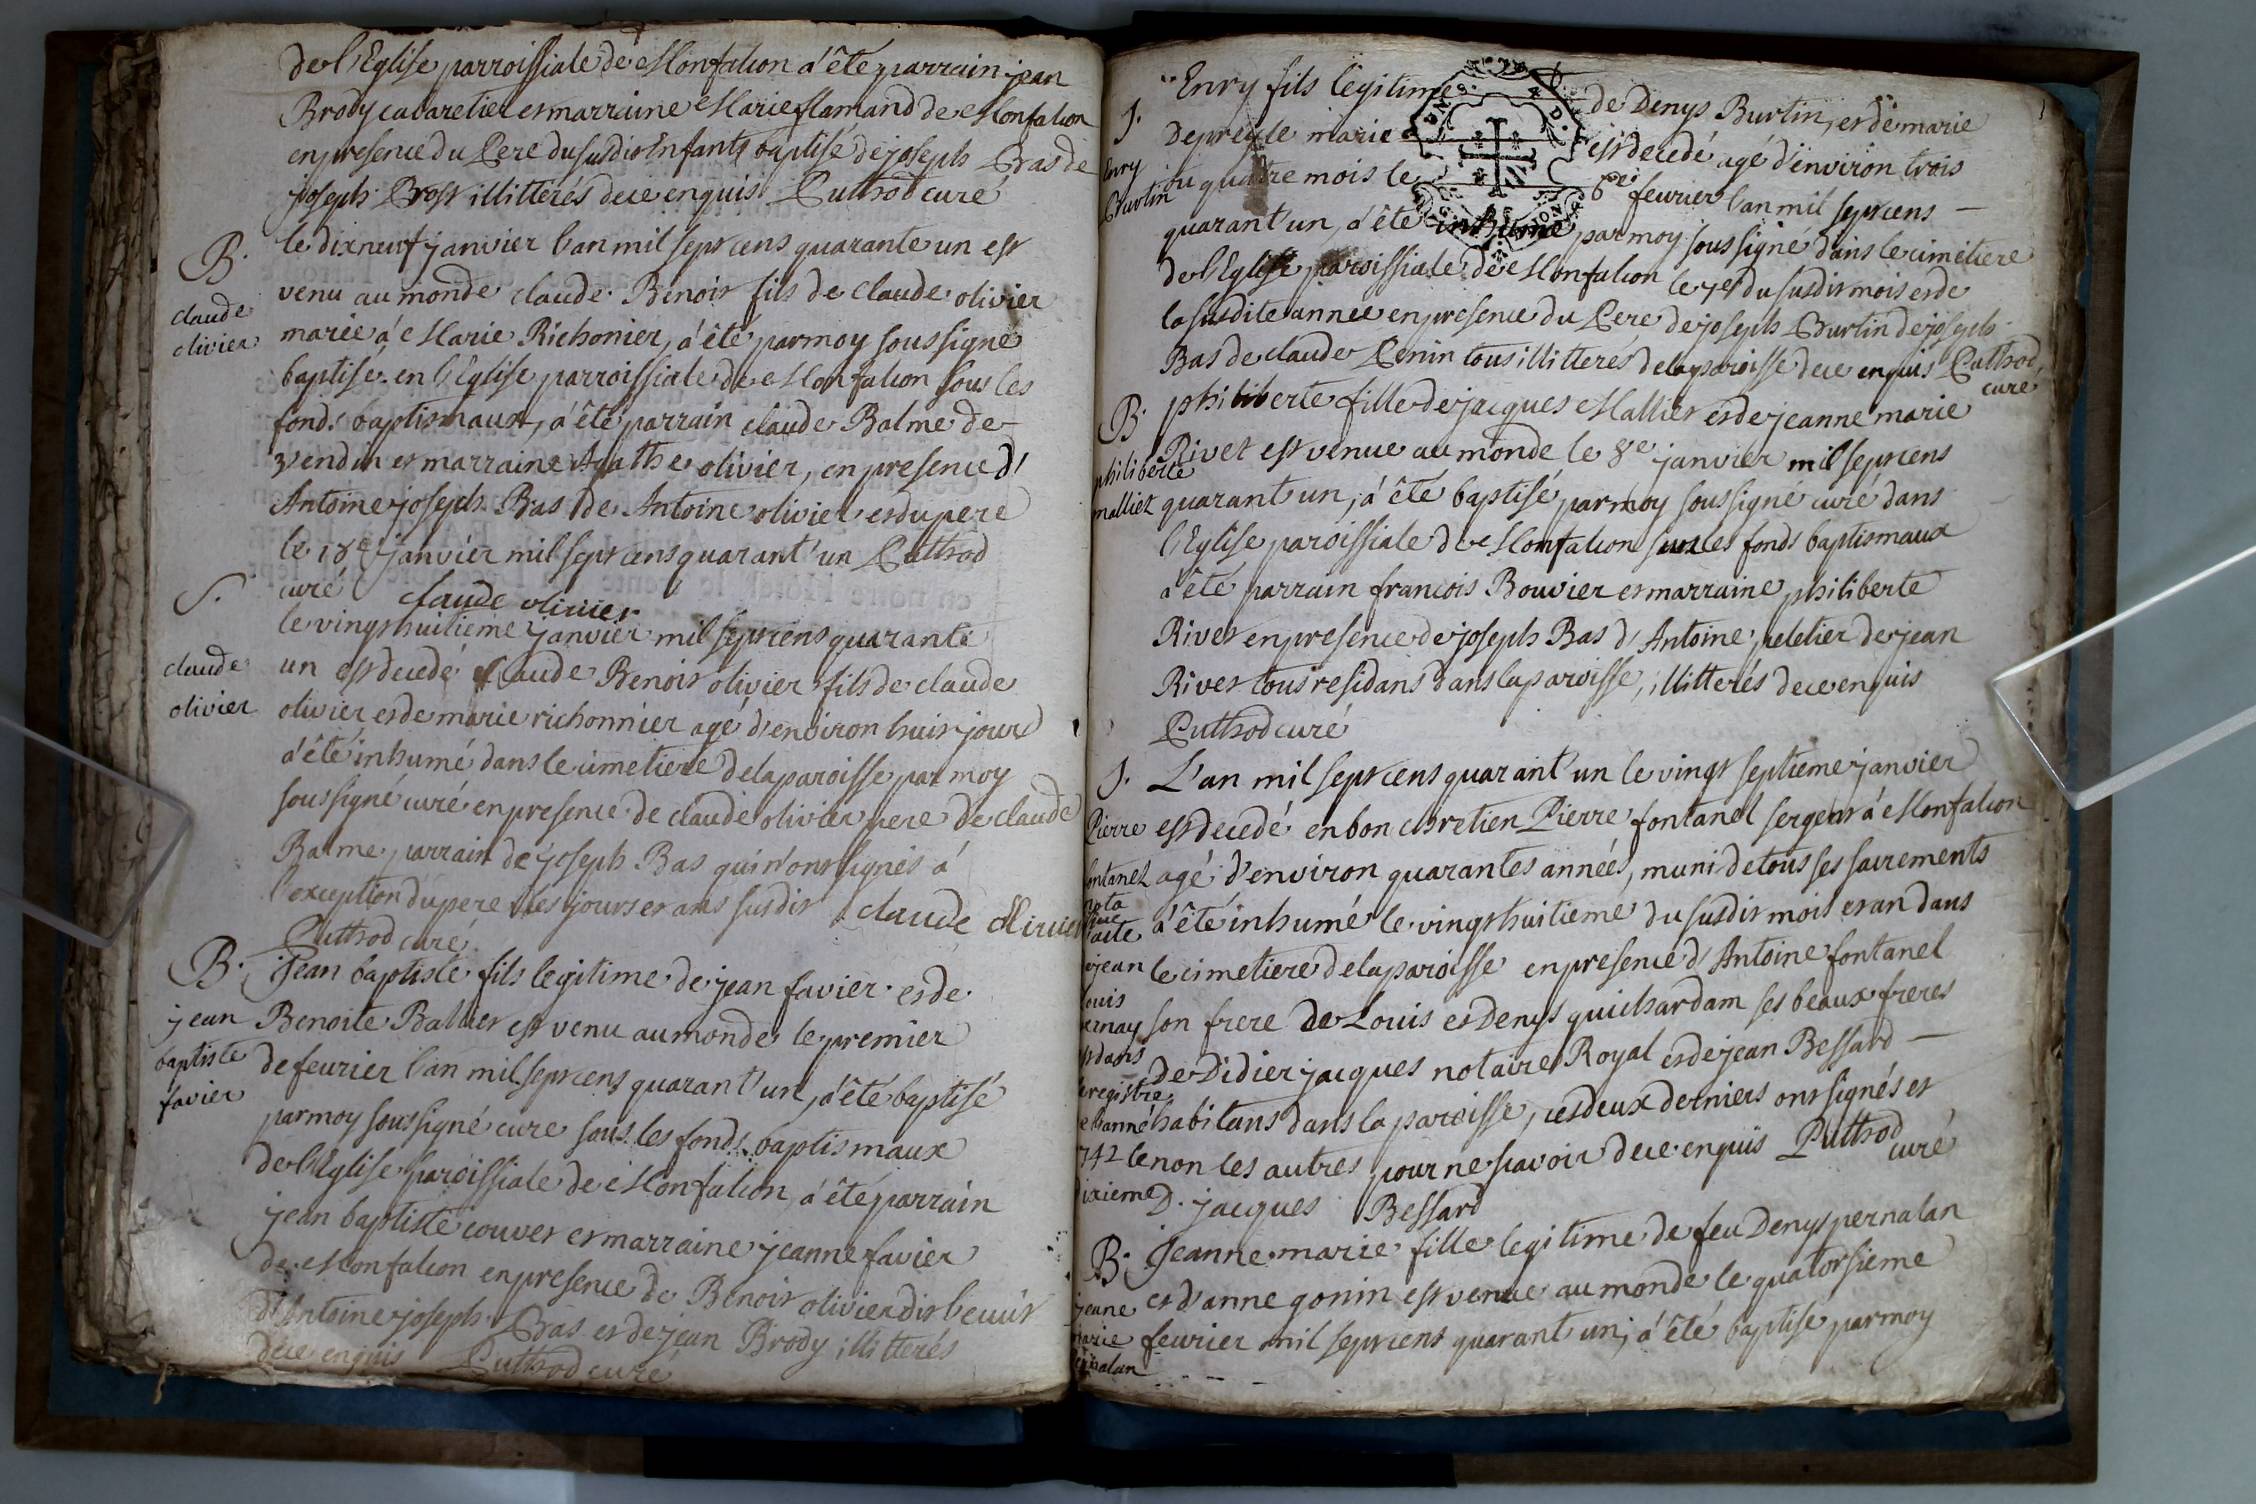 de l'Eglise parroissiale de Monfalcon a été parrain jean
Brody cabaretier et marraine Marie flamand de Monfalcon
en presence du Pere du susdit Enfant baptisé de joseph Bas de
joseph Brost illitterés de ce enquis Puthod curé
B.
claude
olivier
le dixneuf janvier l'an mil sept cens quarante un est
venu au monde claude Benoit fils de claude olivier
mariée á Marie Richonier, a été par moy soussigné
baptisé en l'Eglise parroissiale de Monfalcon sous les
fonds baptismaux, a été parrain claude Balme de
et marraine Agathe olivier, en presence d'
Antoine joseph Bas de Antoine olivier et du pere
le 18e janvier mil sept cens quarant'un Puthod
curé claude olivier
S.
claude
olivier
le vingt huitieme janvier mil sept cens quarante
un est decedé Claude Benoit olivier fils de claude
olivier et de marie richonnier agé d'environ huit jours
a été inhumé dans le cimetiere de la paroisse par moy
soussigné curé en presence de claude olivier pere de claude
Balme parrain de joseph Bas qui n'ont signés á
l'exception du pere les jours et ans susdit claude Olivier
Puthod curé
B.
jean
baptiste
favier
Jean baptiste fils legitime de jean favier et de
Benoite Ballier est venu au monde le premier
de feurier l'an mil sept cens quarant'un, a été baptisé
par moy soussigné cure sous les fonds baptismaux
de l'Eglise paroissiale de Monfalcon, a été parrain
jean baptiste couver et marraine jeanne favier
de Monfalcon en presence de Benoit olivier dit
d'Antoine joseph Bas et de jean Brody illitterés
de ce enquis Puthod curé
J.
Enry
Burtin
Enry fils legitime de Denys Burtin, et de marie
marie est decedé agé d'environ trois
ou quatre mois le 6e feurier l'an mil sept cens
quarant'un, a été inhumé par moy soussigné dans le cimetiere
de l'Eglise paroissiale de Monfalcon le 7e du susdit mois et de
la susdite année en presence du Pere de joseph Burtin de joseph
Bas de claude Penin tous illitterés de la paroisse de ce enquis Puthod
curé
B.
philiberte
malliez
philiberte fille de jacques Mallier et de jeanne marie
Rivet est venue au monde le 8e janvier mil sept cens
quarant'un, a été baptisé par moy soussigné curé dans
l'Eglise paroissiale de Monfalcon sur les fonds baptismaux
a été parrain francois Bouvier et marraine philiberte
Rivet en presence de joseph Bas d'Antoine peletier de jean
Rivet tous residans dans la paroisse, illitterés de ce enquis
Puthod curé
J.
Pierre
L'an mil sept cens quarant'un le vingt septieme janvier
est decedé en bon chretien Pierre fontanel sergent á Monfalcon
agé d'environ quarantes années, muni de tous ses sacrements
a été inhumé le vingt huitieme du susdit mois et an dans
le cimetiere de la paroisse en presence d'Antoine fontanel
son frere de Louis et Denys quichardam ses beaux freres
de Didier jacques notaire Royal et de jean Bessard
habitans dans la paroisse, ces deux derniers ont signés et
non les autres pour ne scavoir de ce enquis Puthod
curé
D. jacques Bessard
fontanel
nota
que
l'acte
jean
louis
vernay
est dans
le registre
de l'année
1742 le
dixieme
B.
jeane
marie
pernalan
Jeanne marie fille legitime de feu Denys pernalan
et d'anne gonin est venue au monde le quatorsieme
feurier mil sept cens quarant un, a été baptise par moy